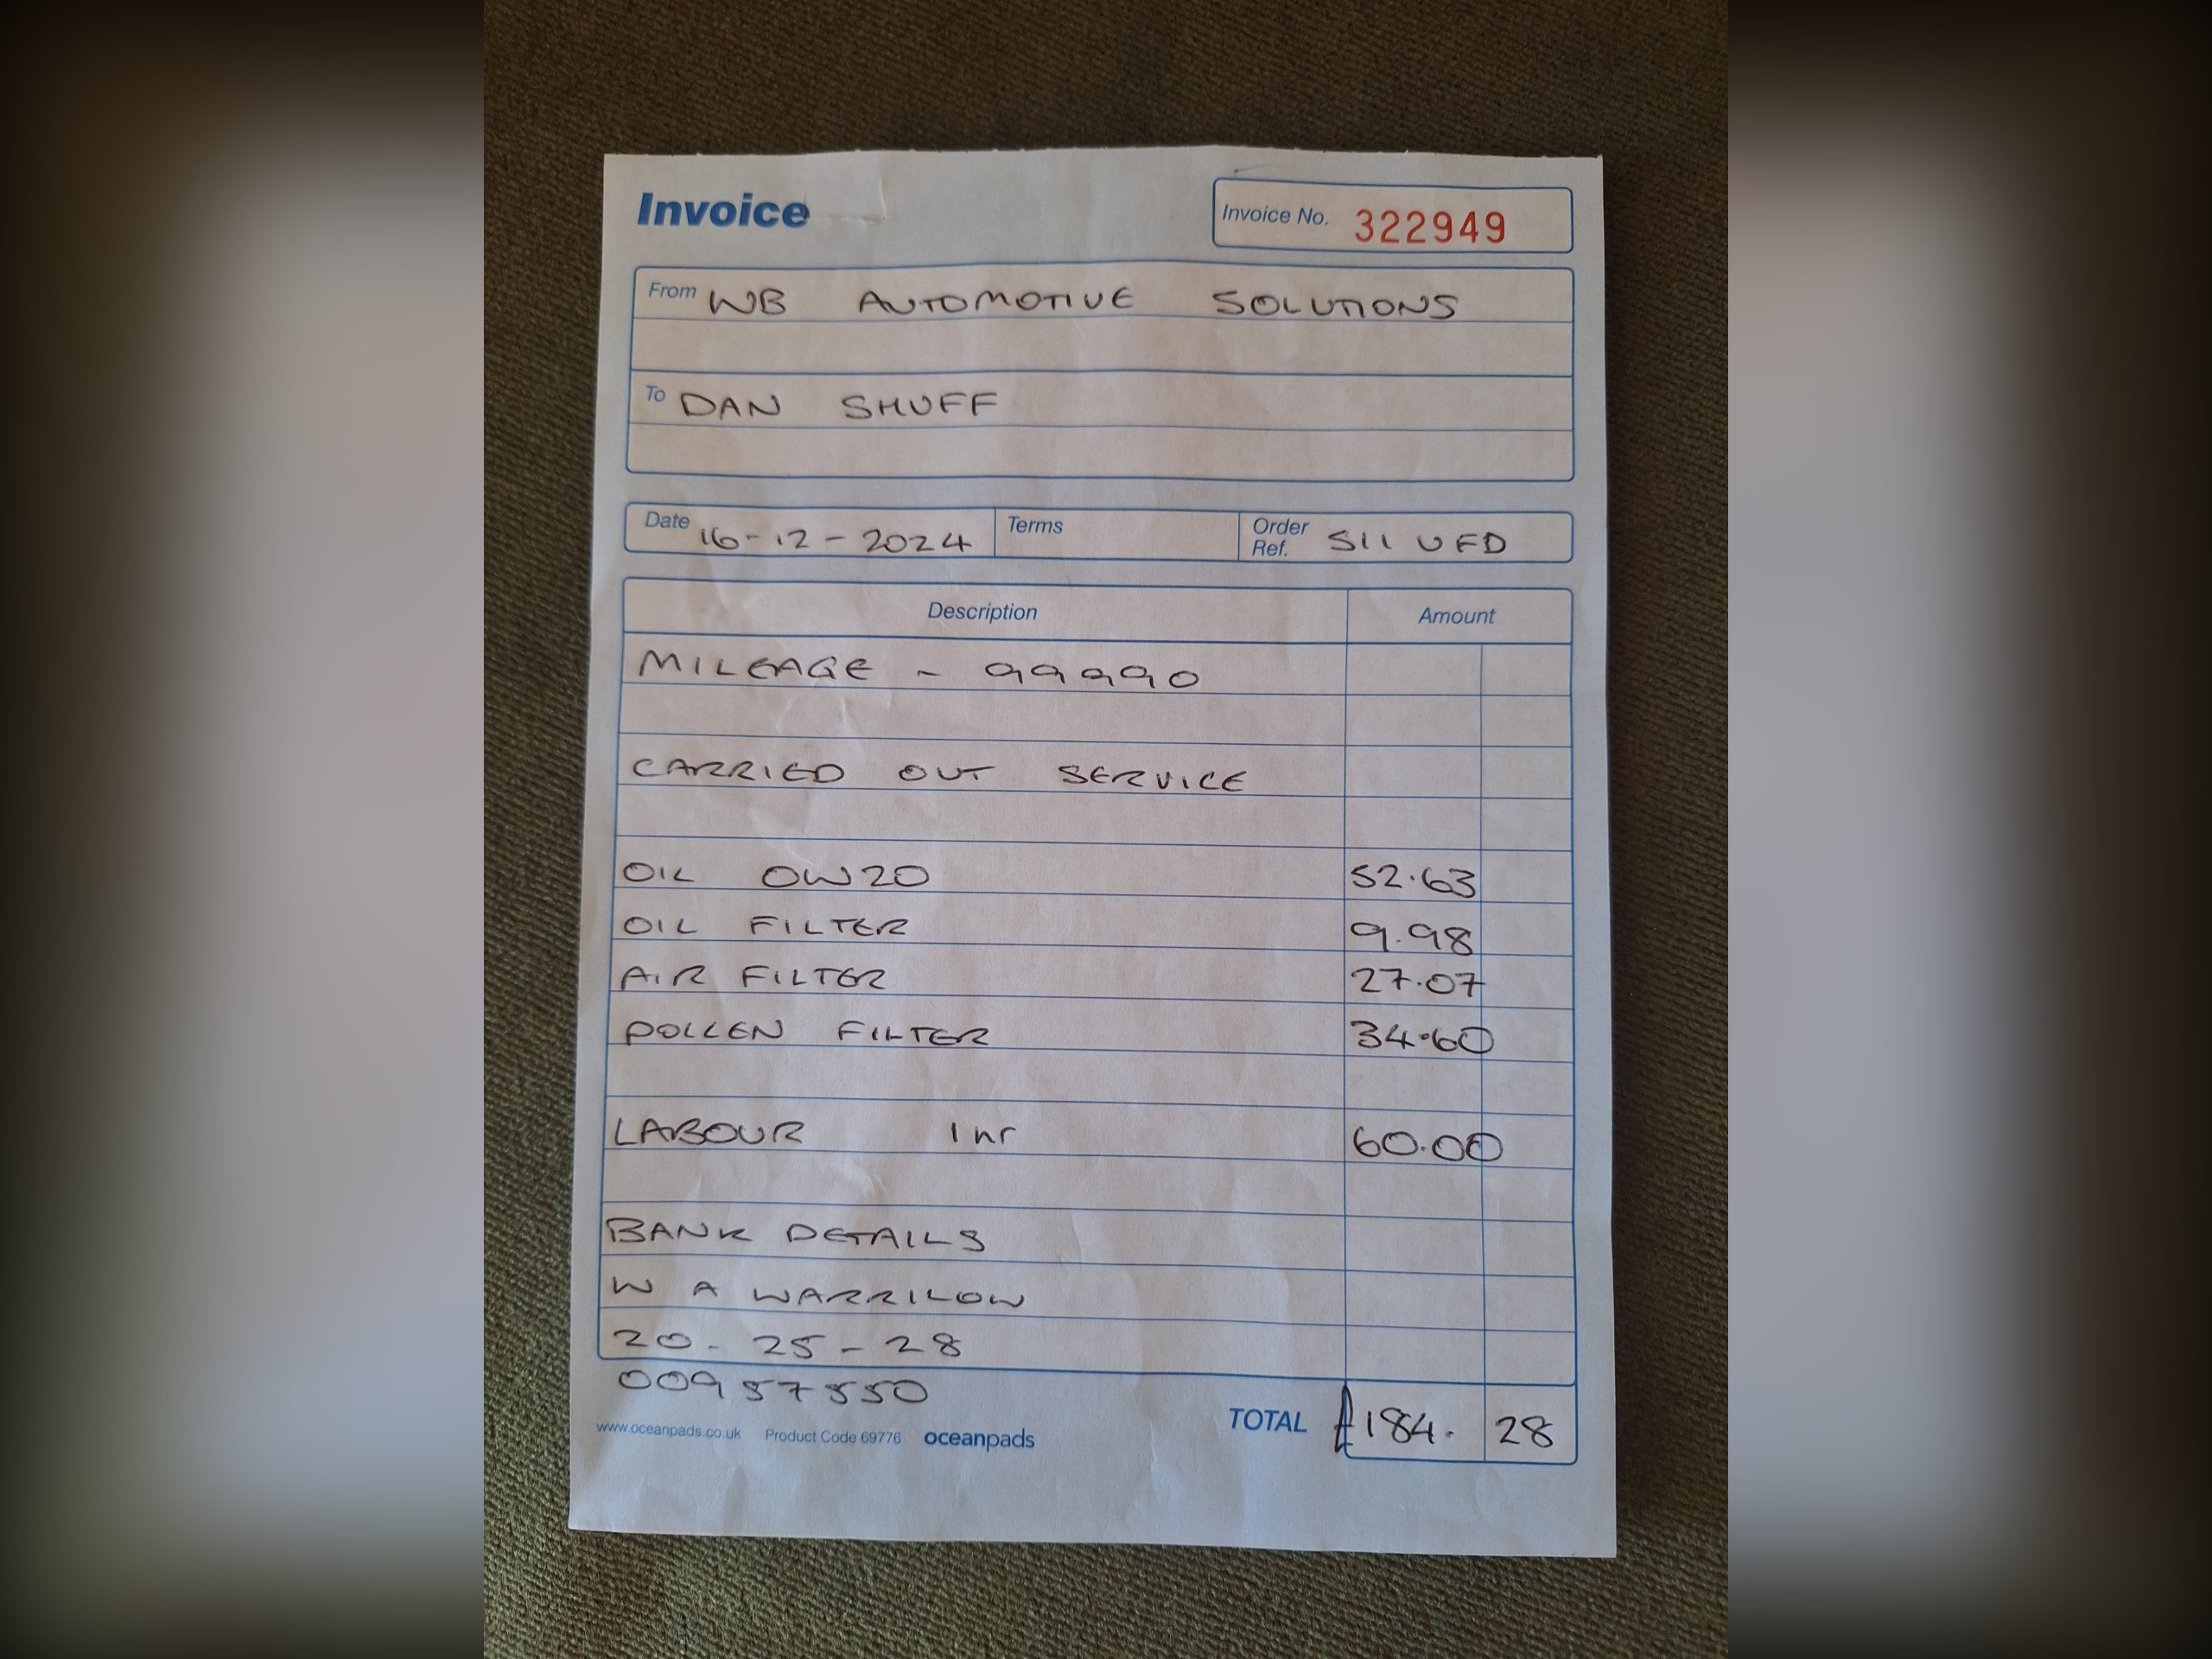 Invoice
Invoice No. 322949
From WB AUTOMOTIVE SOLUTIONS
To DAN SHUFF
Date 16-12-2024 Terms Order Ref. S11 UFD
Description Amount
MILEAGE - 99990
CARRIED OUT SERVICE
OIL 0W20 52.63
OIL FILTER 9.98
AIR FILTER 27.07
POLLEN FILTER 34.60
LABOUR 1hr 60.00
BANK DETAILS
W A WARRILOW
20-25-28
00957550
TOTAL £184. 28
www.oceanpads.co.uk Product Code 69776 oceanpads